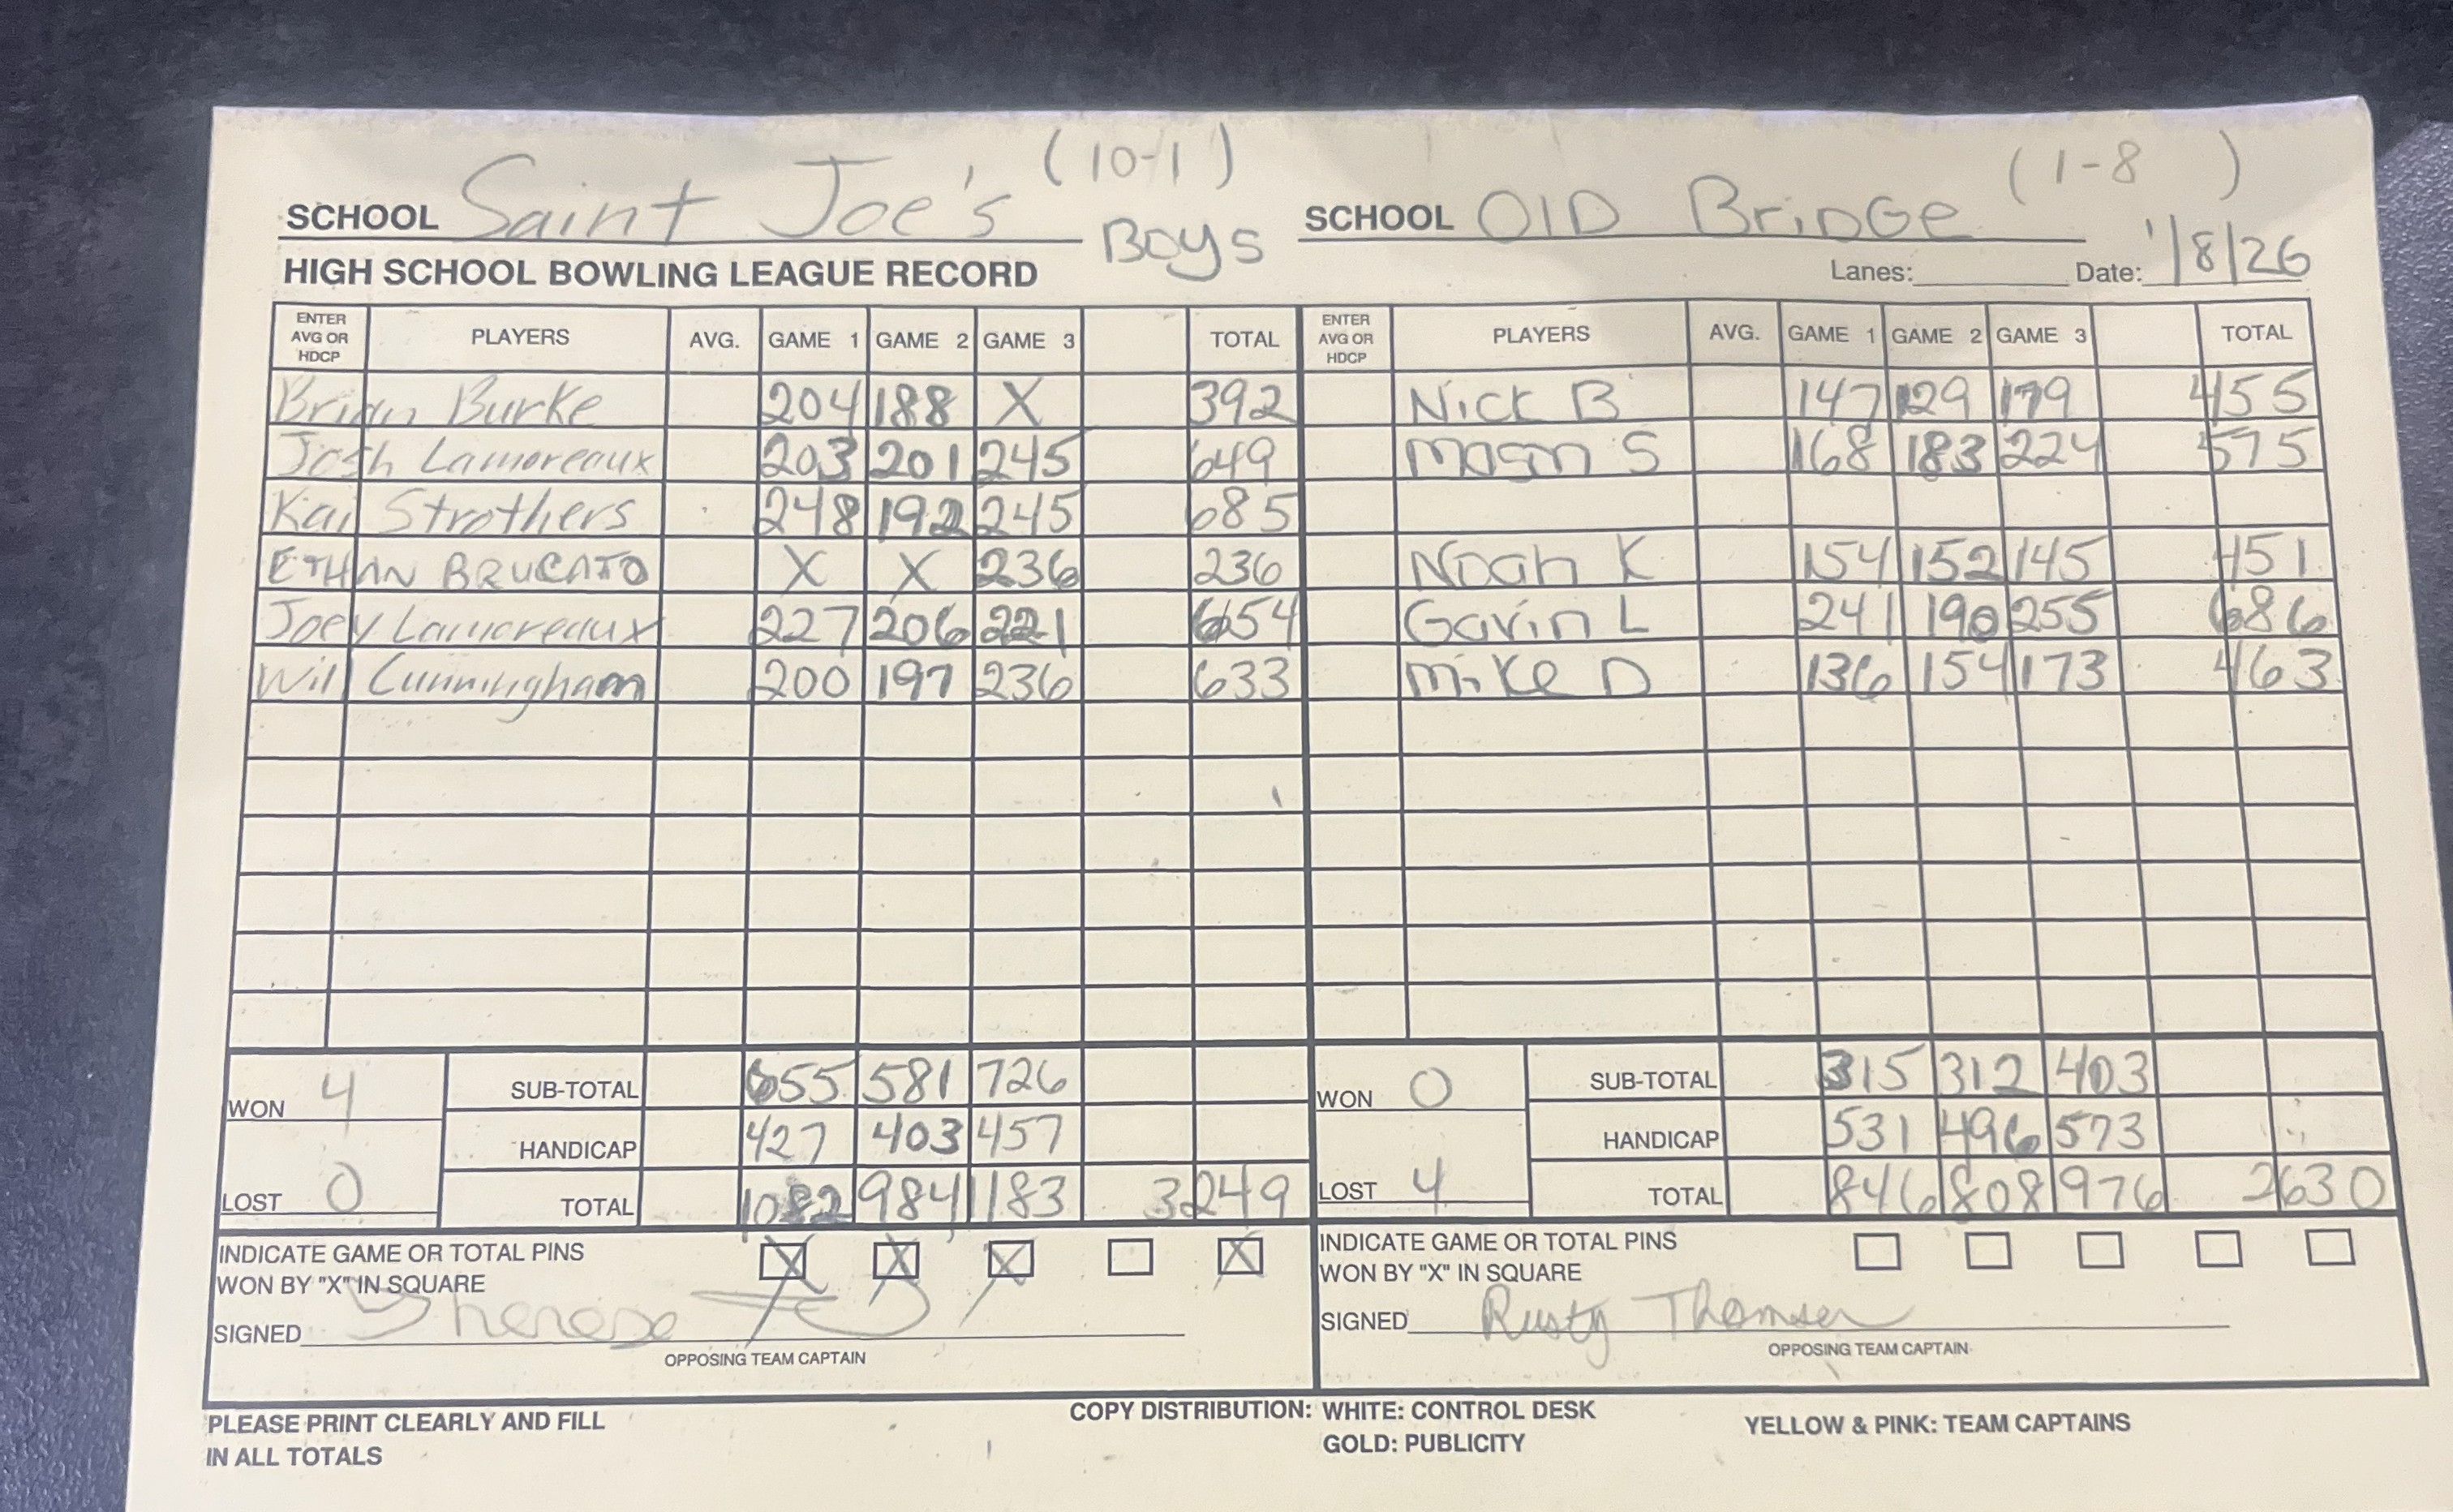 (10-1) (1-8 )
SCHOOL Saint Joe's Boys SCHOOL OlD BriDGe
HIGH SCHOOL BOWLING LEAGUE RECORD Lanes: Date: 1/8/26
ENTER AVG OR HDCP PLAYERS AVG. GAME 1 GAME 2 GAME 3 TOTAL ENTER AVG OR HDCP PLAYERS AVG. GAME 1 GAME 2 GAME 3 TOTAL
Brian Burke 204 188 X 392 Nick B 147 129 179 455
Josh Lamoreaux 203 201 245 649 Mason S 168 183 224 575
Kai Strothers 248 192 245 685
ETHAN BRUCATO X X 236 236 Noah K 154 152 145 451
Joey Lamoreaux 227 206 221 654 Gavin L 241 190 255 686
Will Cunningham 200 197 236 633 Mike D 136 154 173 463
WON 4 SUB-TOTAL 655 581 726 WON 0 SUB-TOTAL 315 312 403
HANDICAP 427 403 457 HANDICAP 531 496 573
LOST 0 TOTAL 1082 984 1183 3249 LOST 4 TOTAL 846 808 976 2630
INDICATE GAME OR TOTAL PINS X X X X INDICATE GAME OR TOTAL PINS
WON BY "X" IN SQUARE WON BY "X" IN SQUARE
SIGNED Therese SIGNED Rusty Thomsen
OPPOSING TEAM CAPTAIN OPPOSING TEAM CAPTAIN
PLEASE PRINT CLEARLY AND FILL COPY DISTRIBUTION: WHITE: CONTROL DESK YELLOW & PINK: TEAM CAPTAINS
IN ALL TOTALS GOLD: PUBLICITY